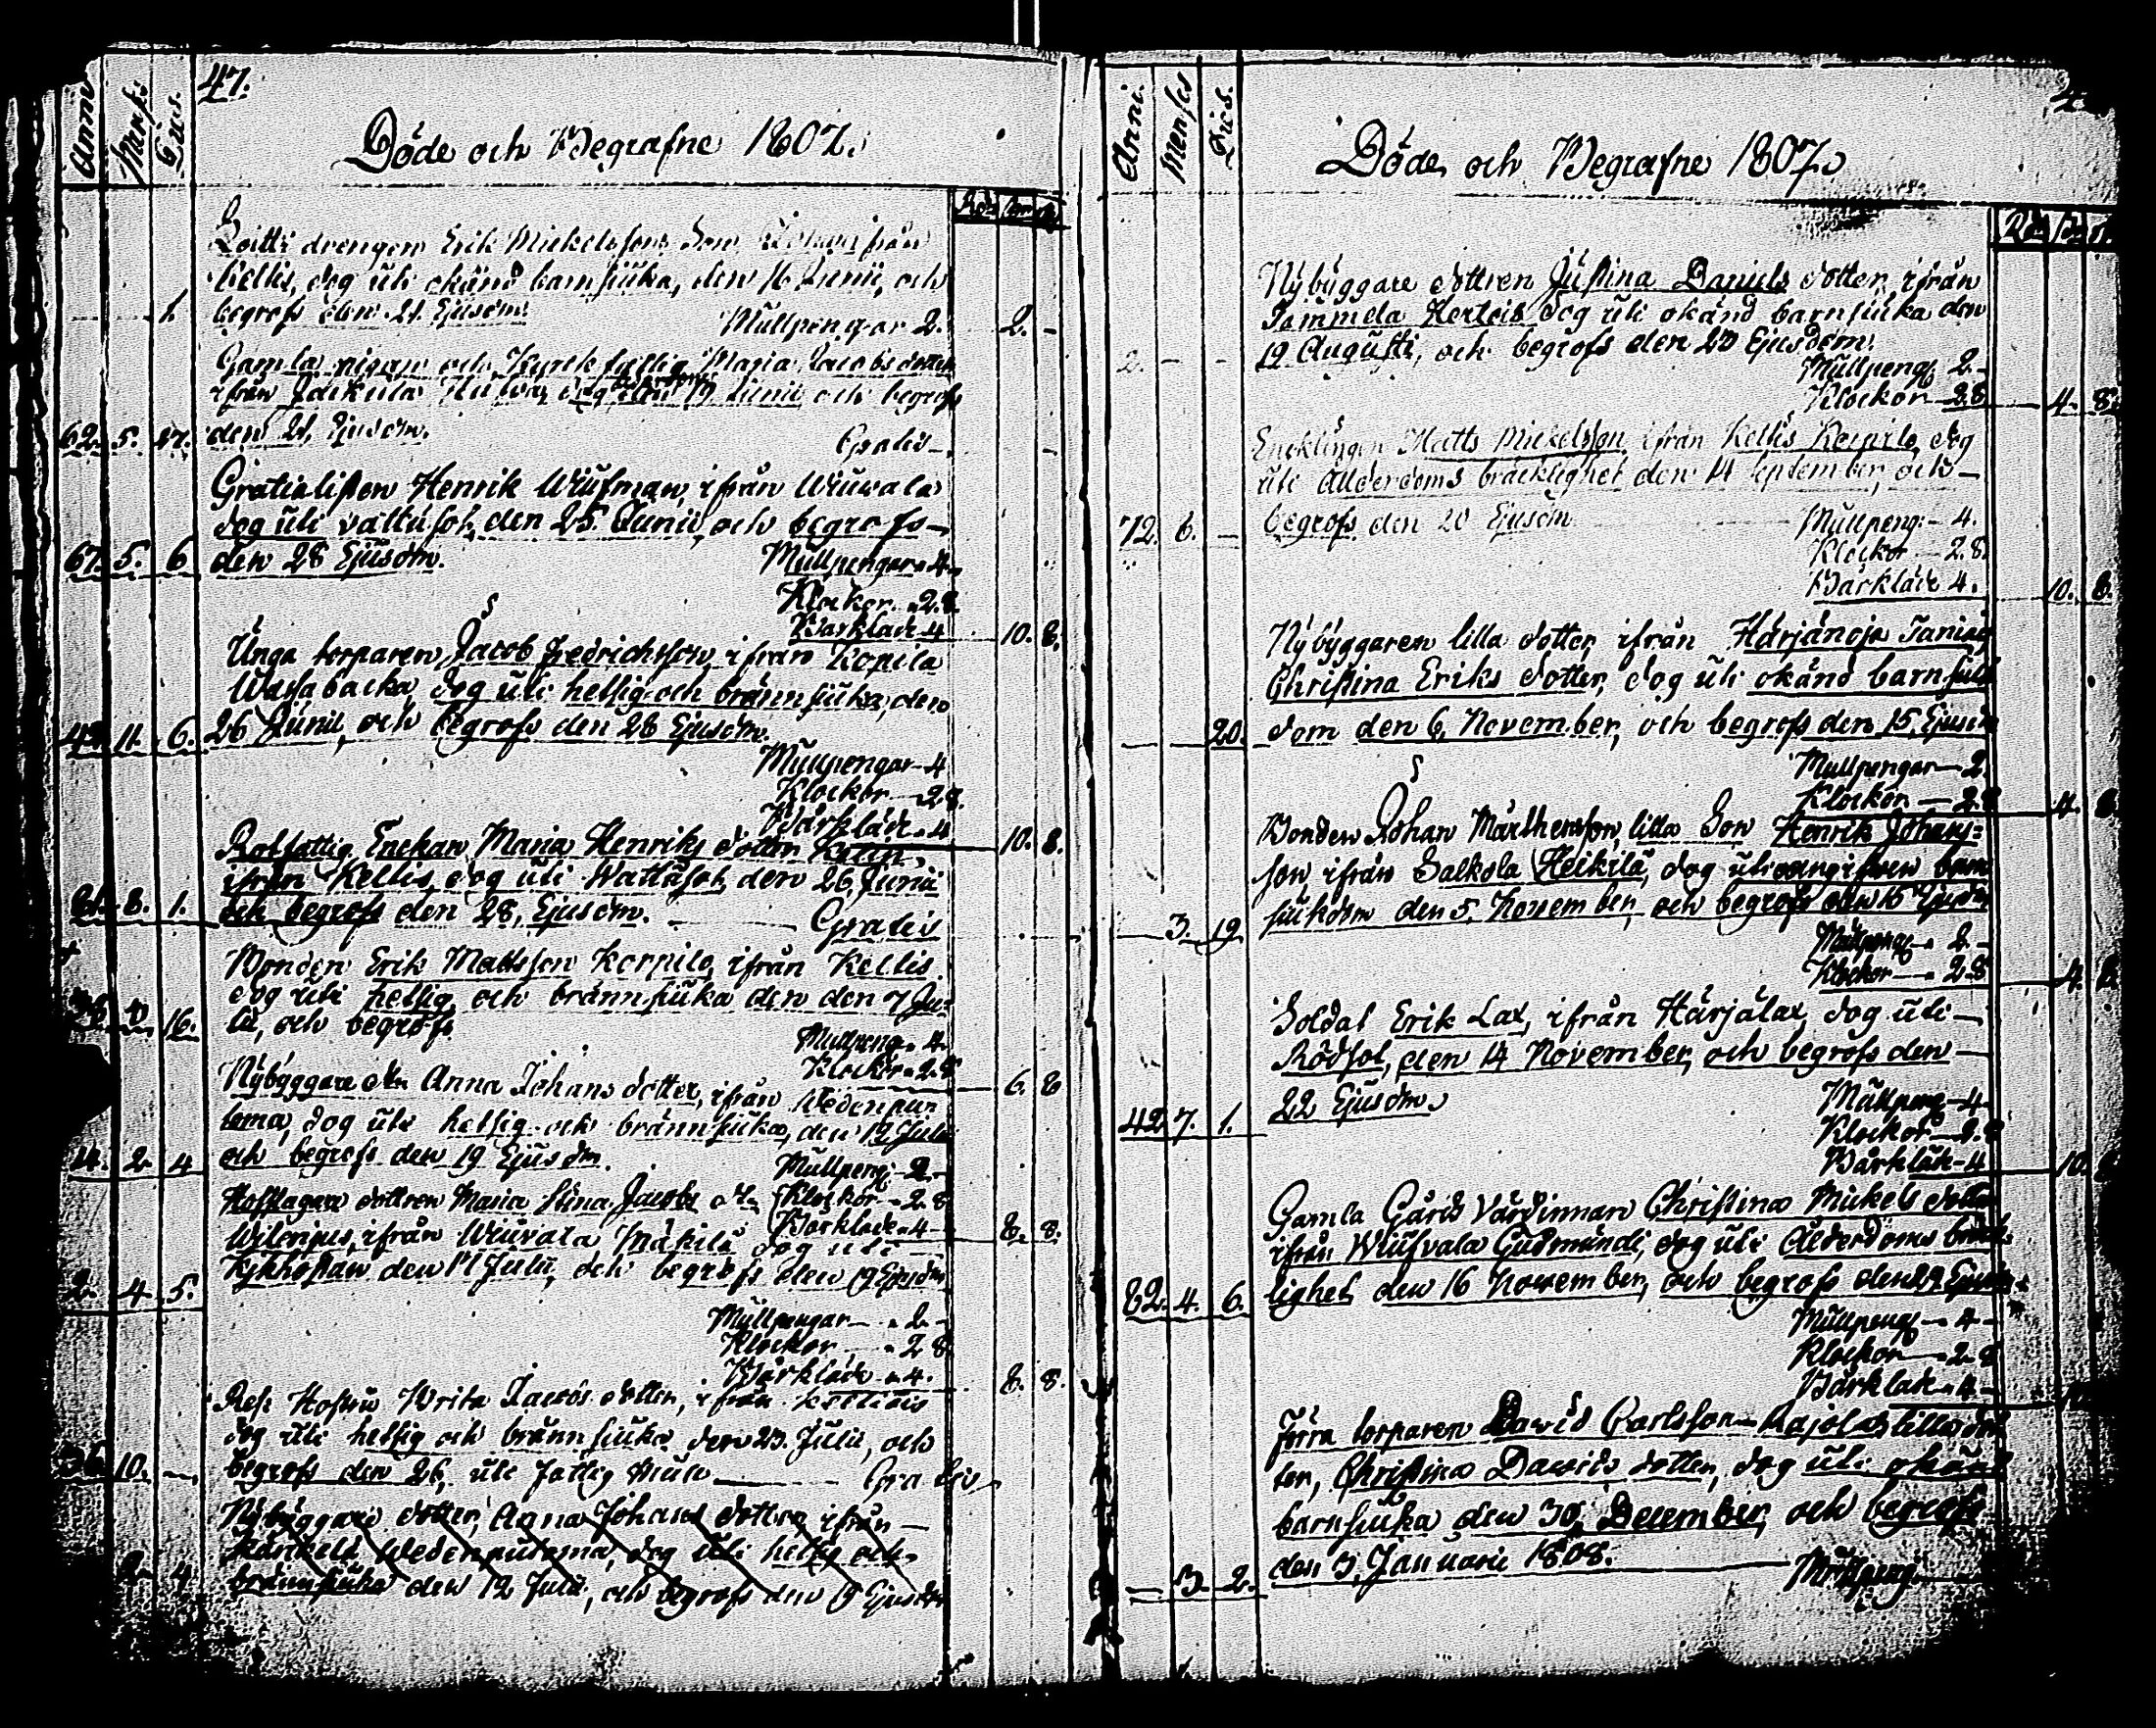 47.
Anni Menses Dies.
Döde och Begrafne 1807.
drengen Erik Mickelssons Son från
Kellis, dog uti okänd barnsjuka, den 16 Junii, och
1. begrofs den 21. Ejusdm.
Mullpengar 2. 2. -
Gamla pigan och Maria Jacobsdotter
ifrån dog den 19 Junii och begrofs
62. 5. 27. den 21, Ejusdm.
Gratis -
Gratialisten Henrik Wiufman, ifrån Wiuwala
dog uti vattusot, den 25. Junii, och begrofs
67. 5. 6 den 28 Ejusdm.
Mullpengar 4.
Klockor. 2.8.
Barklade 4 10. 8.
Unga torparen Jacob Fredrichsson, ifrån Kopila
Wassabacka, dog uti hetsig och brännsjuka, den
11. 6. 26 Junii, och begrofs den 28 Ejusdm.
Mullpengar 4
Klockor 2 8.
Bårkläde 4 10. 8.
Rotfattig Enckan Maria Henriks dotter
ifrån Kellis, dog uti Wattusot, den 26, Junii
8. 1. och begrofs den 28, Ejusdm. Gratis
Bonden Erik Matsson Korpilo, ifrån Kellis
dog uti hetsig och brännsjuka den den 7 Ju-
16. lii, och begrofs
Mullpeng. 4.
Klockor 2.8 6. 8
Nybyggare Anna Johans dotter, ifrån Wedenpur
toma, dog uti hetsig och brännsjuka, den 12 Julii
2. 4 och begrofs den 19 Ejusdm.
Mullpeng. 2.-
dottren Maria Stina Jacobs Klockor 2.8
ifrån Wiuvala Mäkilä dog uti Barklade 4 8. 8.
2. 4 5. Kjkhostan den 14 Julii, och begrofs den 19 Ejusdm
Mullpengar 2 -
Klockor 2 8
Bårkläde 4. 8. 8.
Hustru Brita Jacobs dotter, ifrån
dog uti hetsig och brännsjuka den 23. Julii, och
10. - begrofs den 26, uti fattig Gratis
Nybyggare dotter, Anna Johans dotter, ifrån
Wedenpuroma, dog uti hetsig och
2 4 brännsjuka den 12 Julii, och begrofs den 19 Ejusdm
Anni. Menses Dies.
Döde och Begrafne 1807.
Nybyggare dottren Justina Daniels dotter, ifrån
Tammela dog uti okänd barnsjuka den
2. - - 19 Augusti, och begrofs den 23 Ejusdem.
Mullpeng. 2.-
Klockor 2.8 4. 8.
Encklingen Matts Mickelsson, ifrån Kellis Korpilo, dog
uti Ålderdoms bräcklighet den 14 September, och
72. 6. - begrofs den 20 Ejusdm
Mullpeng. 4.
Klockor 2.8.
Bårkläde 4. 10. 8.
Nybyggaren lilla dotter, ifrån Härjänoja
Christina Eriks dotter, dog uti okänd barnsjuk
20. dom den 6, November, och begrofs den 15, Ejusdm
Mullpengar 2.
Klockor 2.8 4. 8
Bonden Johan Mårthensson, lilla Son Henrik Johans=
son, ifrån Salkola Heikilä, dog uti barn
3. 19. sjukdom den 5, November, och begrofs den 15 Ejusdm
Mullpeng. 2. -
Klockor 2.8 4. 8
Soldat Erik Lax, ifrån Härjälax, dog uti
Rödsot, den 14 November, och begrofs den
42 7. 1. 22 Ejusdm.
Mullpeng 4.
Klockor 2.8
Bårkläde 4 10.
Gamla Gårds Värdinnan Christina Mickels dotter
ifrån Wiufvala Gudmundi, dog uti Ålderdoms bräck
82. 4. 6. lighet den 16 November, och begrofs den 29 Ejusdm
Mullpeng. 4 -
Klockor 2.8
Bårkläde 4 -
Förra torparen David Carlsson lilla dot
ter, Christina Davids dotter, dog uti okänd
barnsjuka den 30, December, och begrofs
- 3. 2. den 3, Januarii 1808. Mullpeng.